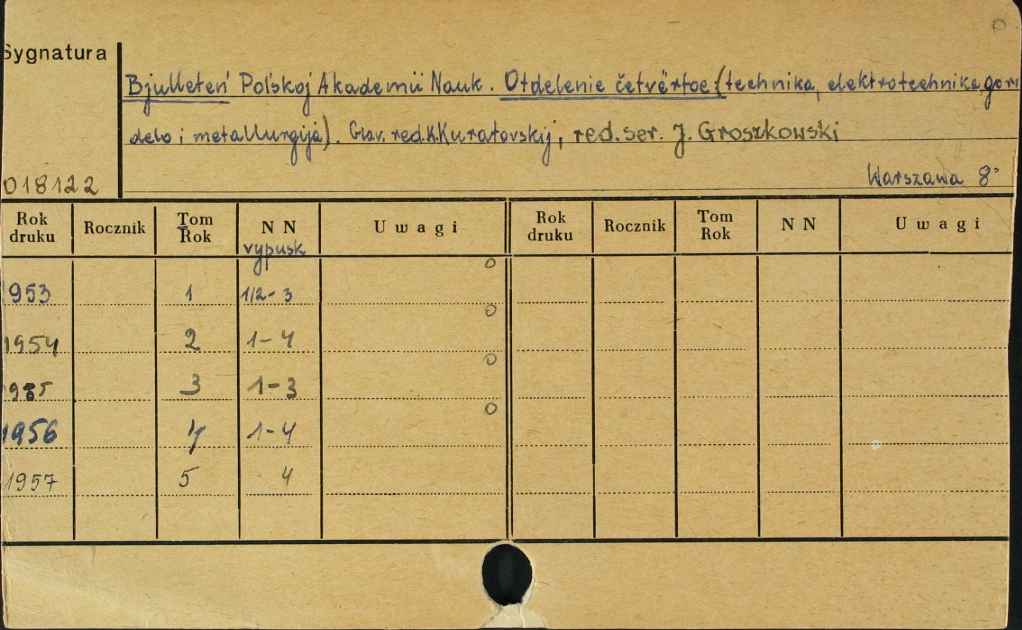 Sygnatura
Bjulleteń Polskoj Akademii Nauk. Otdelenie četvërtoe (technika, elektrotechnika, gorn
delo i metallurgija). Glav. red. K. Kuratovskij, red. ser. J. Groszkowski
018122 Warszawa 8°
Rok druku Rocznik Tom Rok N N vypusk Uwagi Rok druku Rocznik Tom Rok N N Uwagi
953 1 1/2-3 0
1954 2 1-4 0
985 3 1-3 0
1956 4 1-4 0
1957 5 4